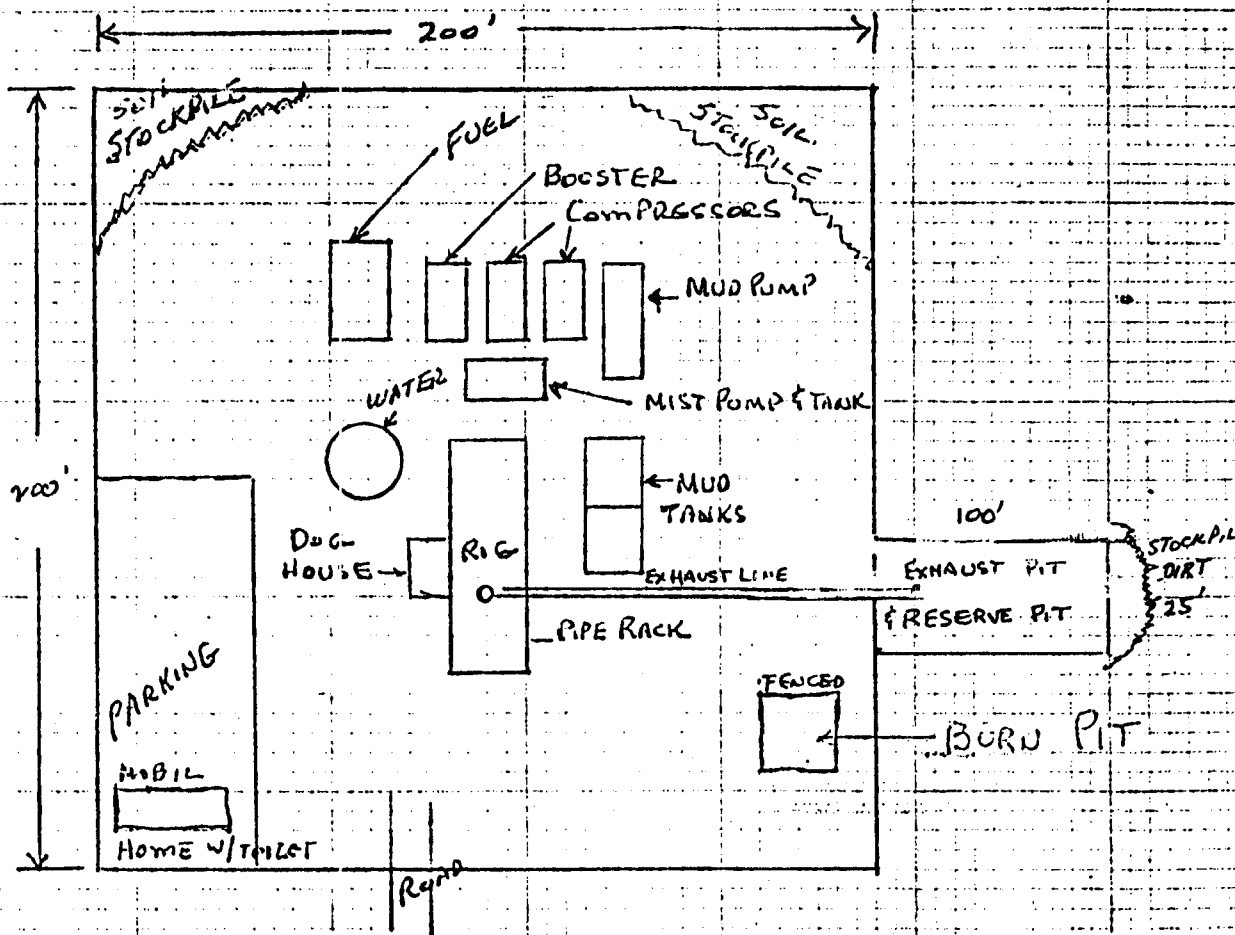 200'
SOIL
STOCKPILE
SOIL
STOCKPILE
FUEL
BOOSTER
COMPRESSORS
MUD PUMP
WATER
MIST PUMP & TANK
200'
MUD
TANKS
100'
DOG
HOUSE
RIG
EXHAUST LINE
EXHAUST PIT
& RESERVE PIT
STOCKPIL
DIRT
25'
PIPE RACK
PARKING
FENCED
BURN PIT
MOBIL
HOME W/TOILET
ROAD